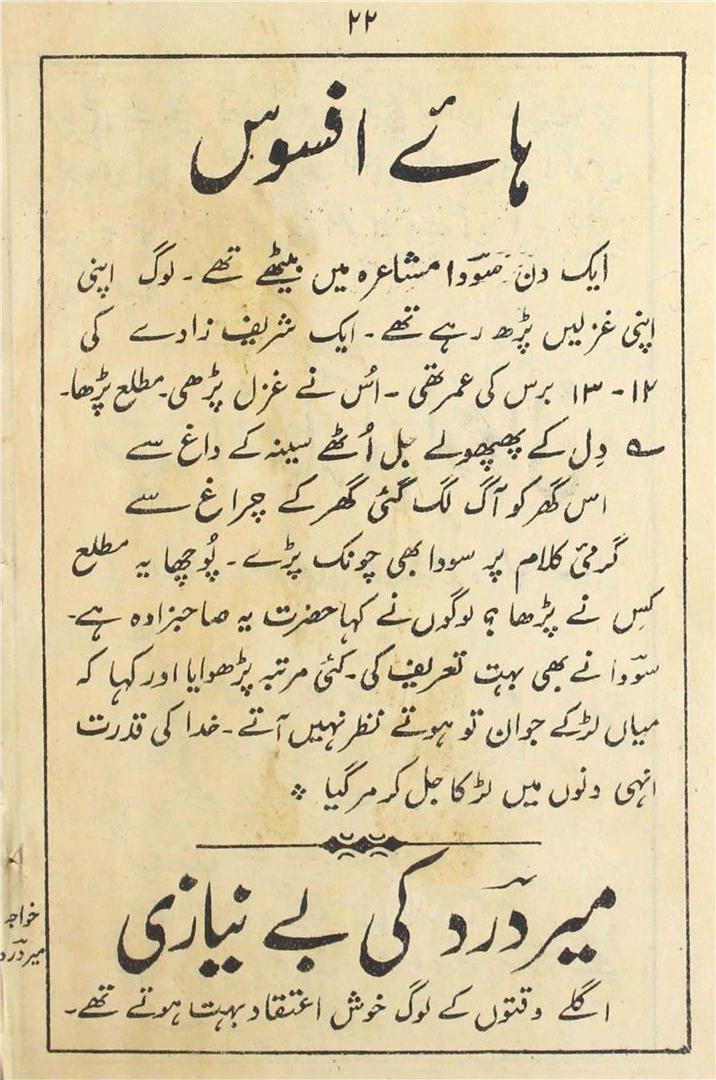 ۲۲
ہائے افسوس
ایک دن سوؔدا مشاعرہ میں بیٹھے تھے۔ لوگ اپنی
اپنی غزلیں پڑھ رہے تھے۔ ایک شریف زادے کی
۱۲-۱۳ برس کی عمر تھی۔ اُس نے غزل پڑھی۔ مطلع پڑھا۔
؎ دِل کے پھپھولے جل اُٹھے سینہ کے داغ سے
اس گھر کو آگ لگ گئی گھر کے چراغ سے
گرمئی کلام پر سودا بھی چونک پڑے۔ پُوچھا یہ مطلع
کِس نے پڑھا؟ لوگوں نے کہا حضرت یہ صاحبزادہ ہے۔
سوؔدا نے بھی بہت تعریف کی۔ کئی مرتبہ پڑھوایا اور کہا کہ
میاں لڑکے جوان تو ہوتے نظر نہیں آتے۔ خدا کی قدرت
انہی دنوں میں لڑکا جل کر مر گیا ؞
میر درؔد کی بے نیازی
خواجہ
میر درؔد
اگلے وقتوں کے لوگ خوش اعتقاد بہت ہوتے تھے۔